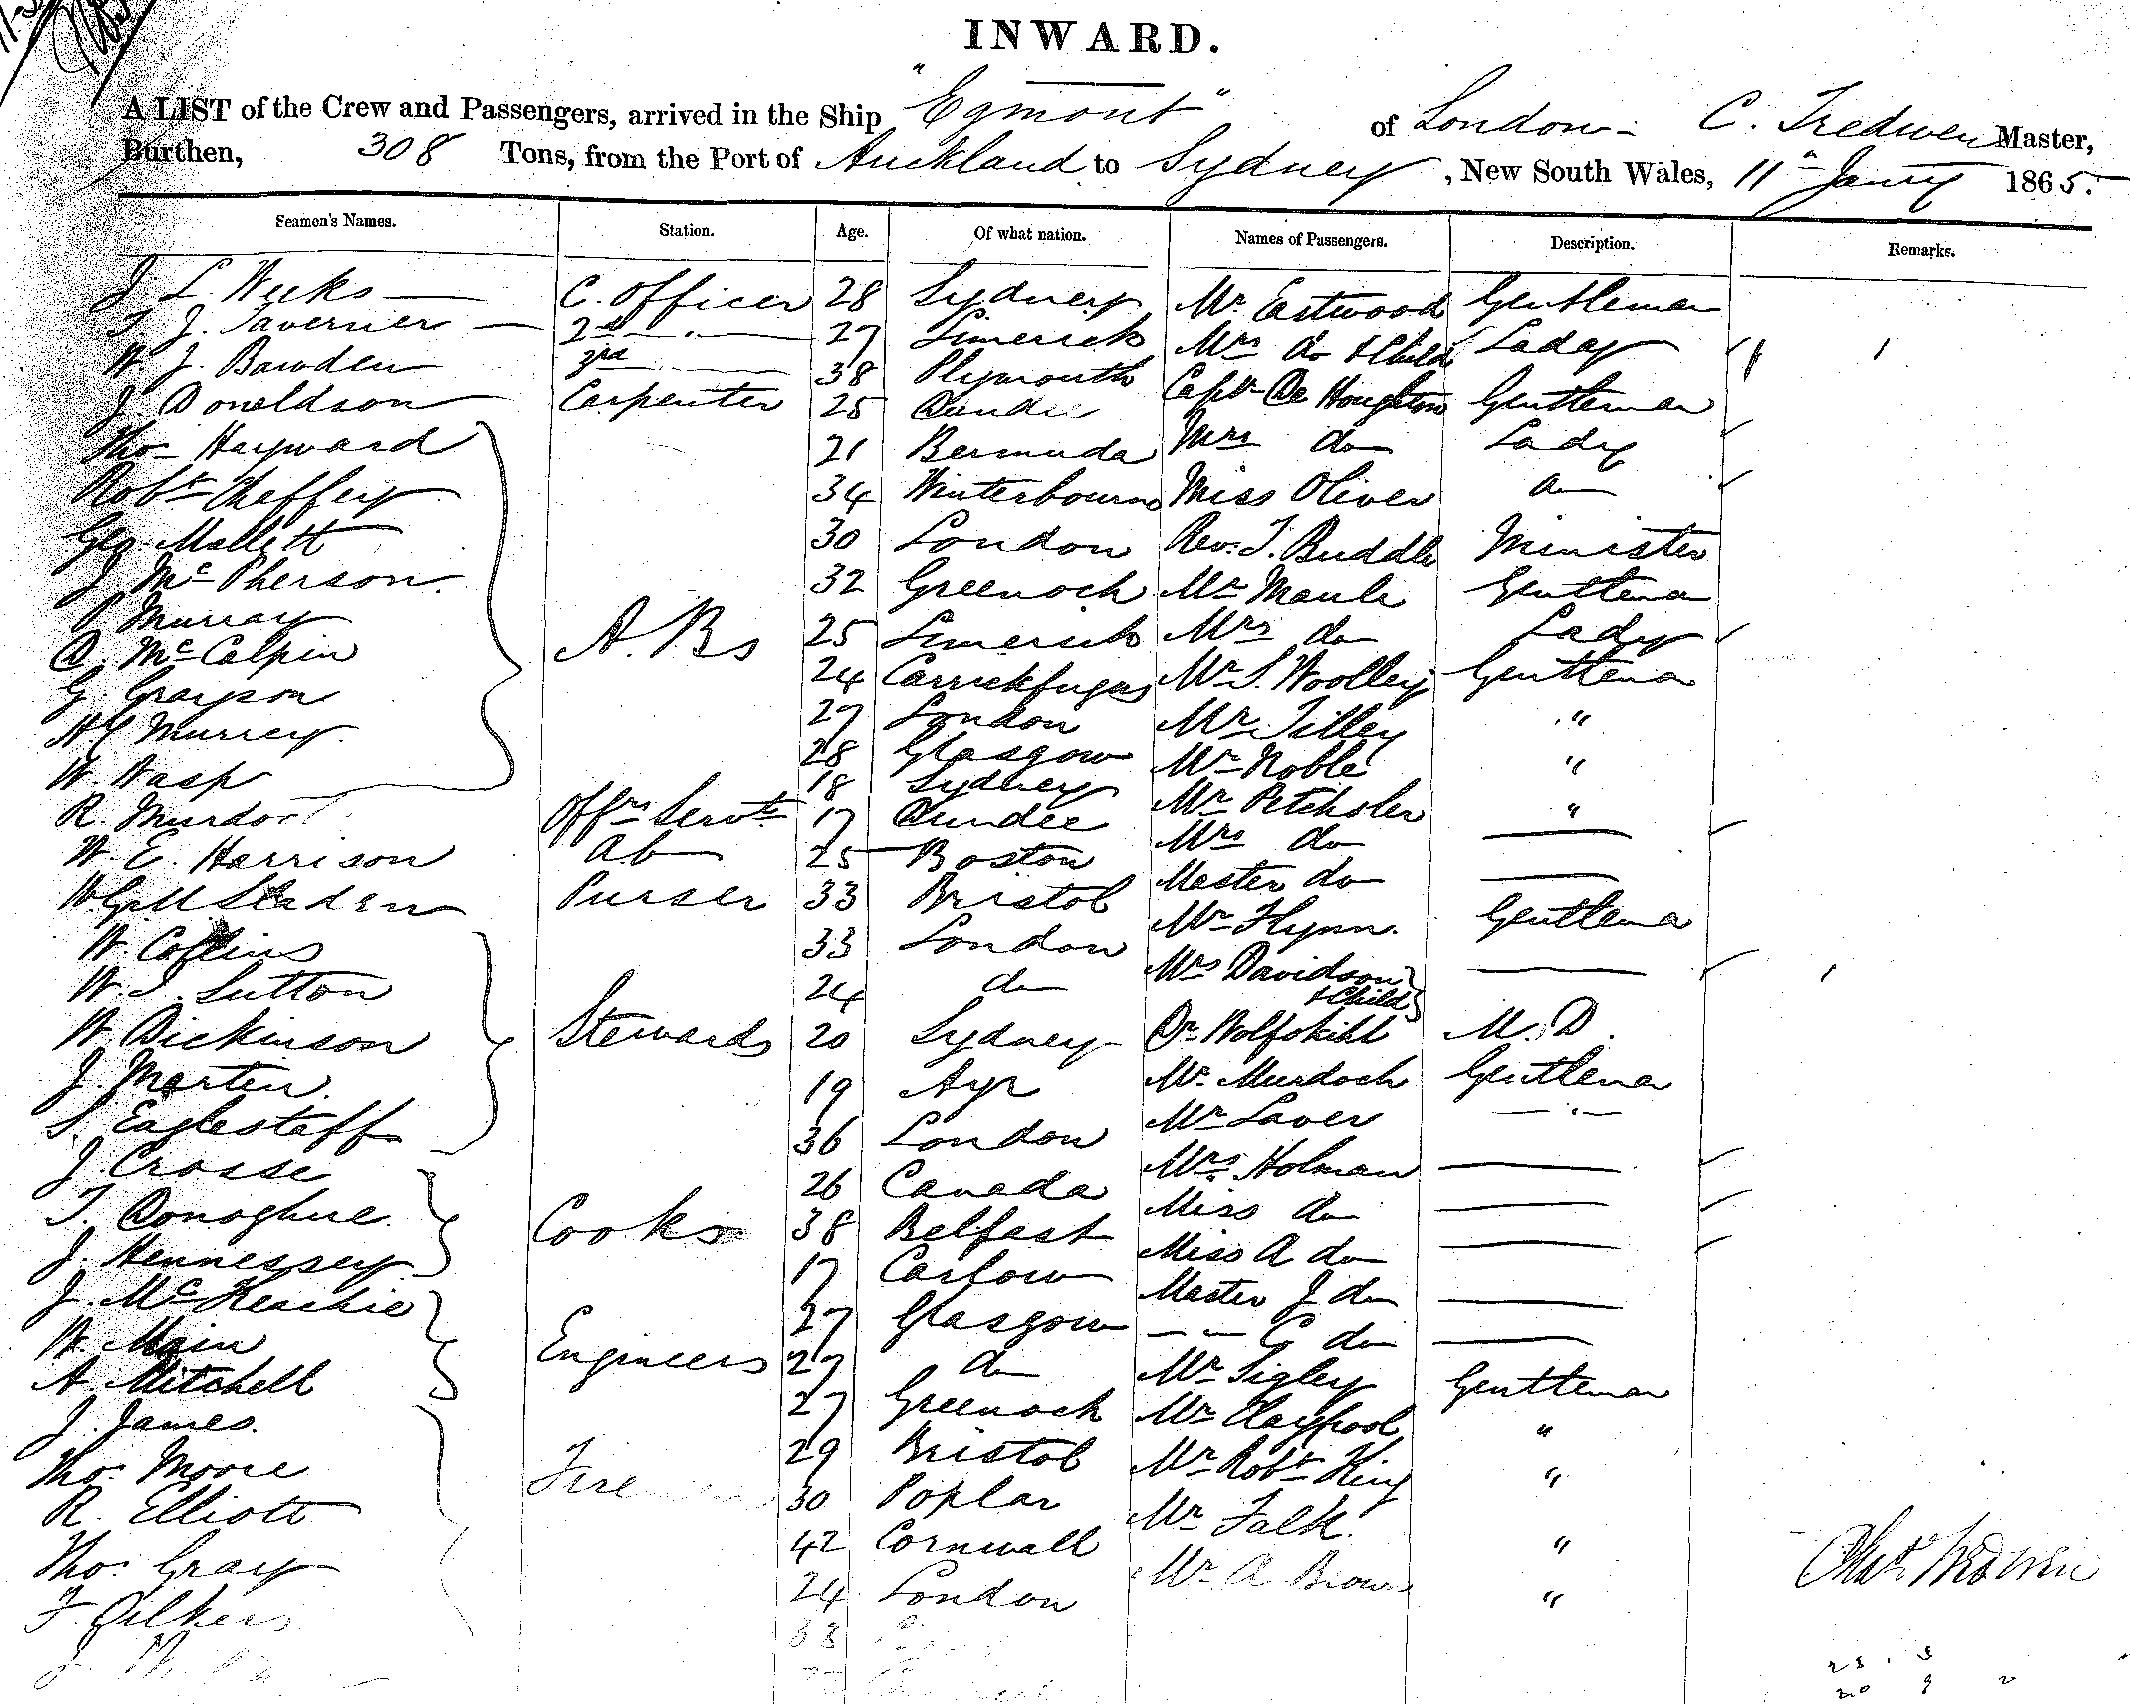 INWARD.
A LIST of the Crew and Passengers, arrived in the Ship "Egmont" of London - C. Tredwen Master,
Burthen, 308 Tons, from the Port of Auckland to Sydney, New South Wales, 11th Jany 1865.
Seamen's Names. Station. Age. Of what nation. Names of Passengers. Description. Remarks.
J. L. Weeks C. Officer 28 Sydney Mr Eastwood Gentleman
T. J. Tavernier 2nd " 27 Limerick Mrs do & Child Lady
W. J. Bawden 3rd 38 Plymouth Captn De Houghton Gentleman
J. Donaldson Carpenter 25 Dundee Mrs do Lady
Tho- Hayward 21 Bermuda Miss Oliver do
Robt Cheffey 34 Winterbourne Rev. T. Buddle Minister
Geo. Mallett 30 London Mr Maule Gentleman
J. McPherson 32 Greenock Mrs do Lady
P Murray A. Bs 25 Limerick Mr S. Woolley Gentleman
D. McCalpin 24 Carrickfugus Mr Tilley "
G. Grayson 27 London Mr Noble "
H G Murrey 28 Glasgow Mr Petchsler "
W Wasp 18 Sydney Mrs do
R. Murdo Offrs Servt 17 Dundee Master do
W. E. Harrison Ab 25 Boston Mr Flynn. Gentleman
Sladen Purser 33 Bristol Mrs Davidson & Child
W. Collins 33 London Dr Wolfskihl M. D.
W. J. Sutton 24 do Mr Murdoch Gentleman
W. Dickinson Stewards 20 Sydney Mr Laver "
J. Martin 19 Ayr Mrs Holman
S. Eaglestaff 36 London Miss do
J. Crosse 26 Canada Miss A do
T. Donoghue Cooks 38 Belfast Master J do
J. Hennessey 17 Carlow " " G do
J. McKeachie 27 Glasgow Mr Sigley Gentleman
W. Main Engineers 27 do Mr Claypool "
A. Mitchell 27 Greenock Mr Robt King "
J. James 29 Bristol Mr Falk "
Thos Moore Fire 30 Poplar Mr A Brown "
R. Elliott 42 Cornwall
Thos Gray 24 London
F. Gilkers 33
Chas Tredwen